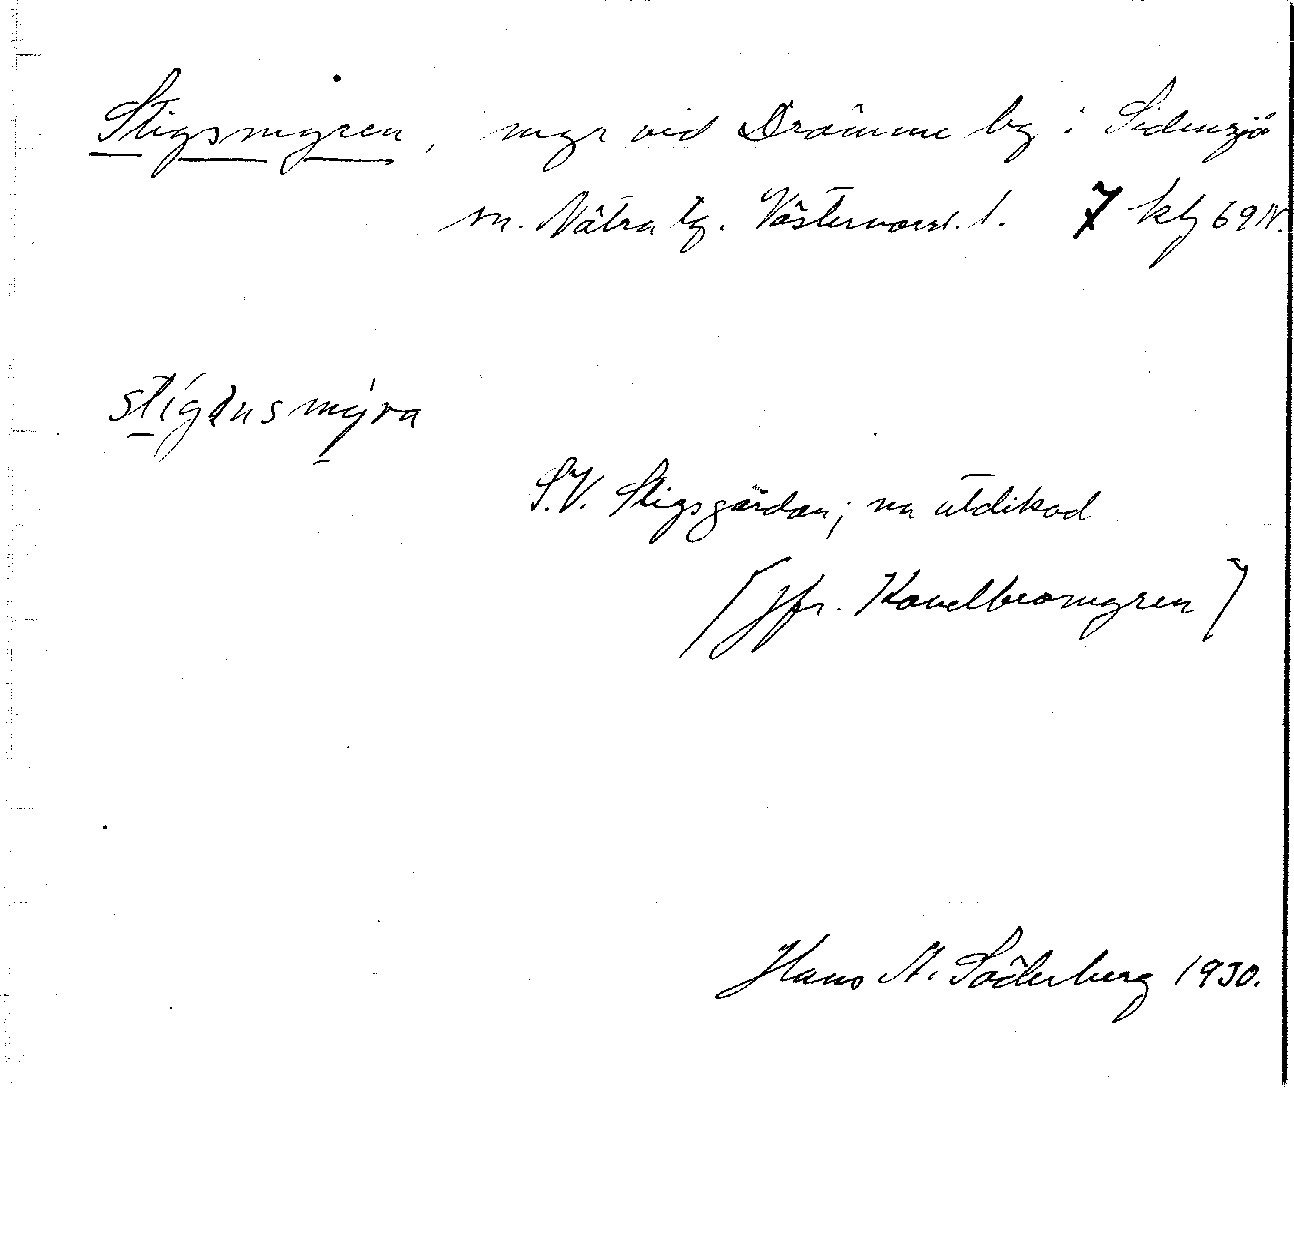 Stigsmyren, myr vid Drömme by i Sidensjö
sn. Nätra tg. Västernorrl. l. 7 kbl 69 N.
stígənsmýra
S.V. Stigsgärdan; nu utdikad
[Jfr. Kavelbromyren]
Hans A. Söderberg 1930.